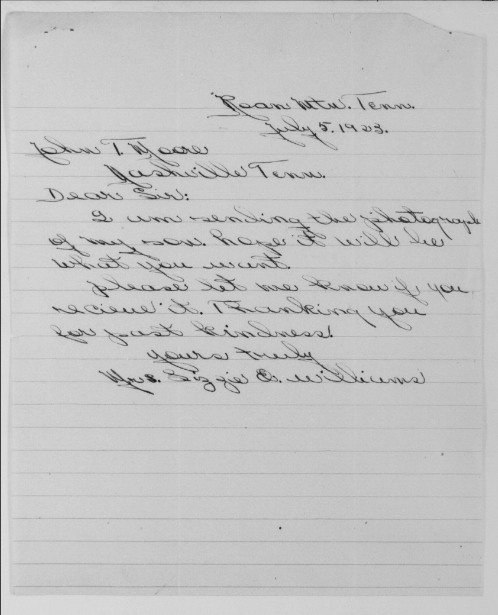 Roan Mtn. Tenn.
July 5, 1923.
John T. Moore
Nashville Tenn.
Dear Sir:
I am sending the photograph
of my son. hope it will be
what you want.
please let me know if you
recieve it. Thanking you
for past kindness.
yours truly
Mrs. Lizzie O. Williams